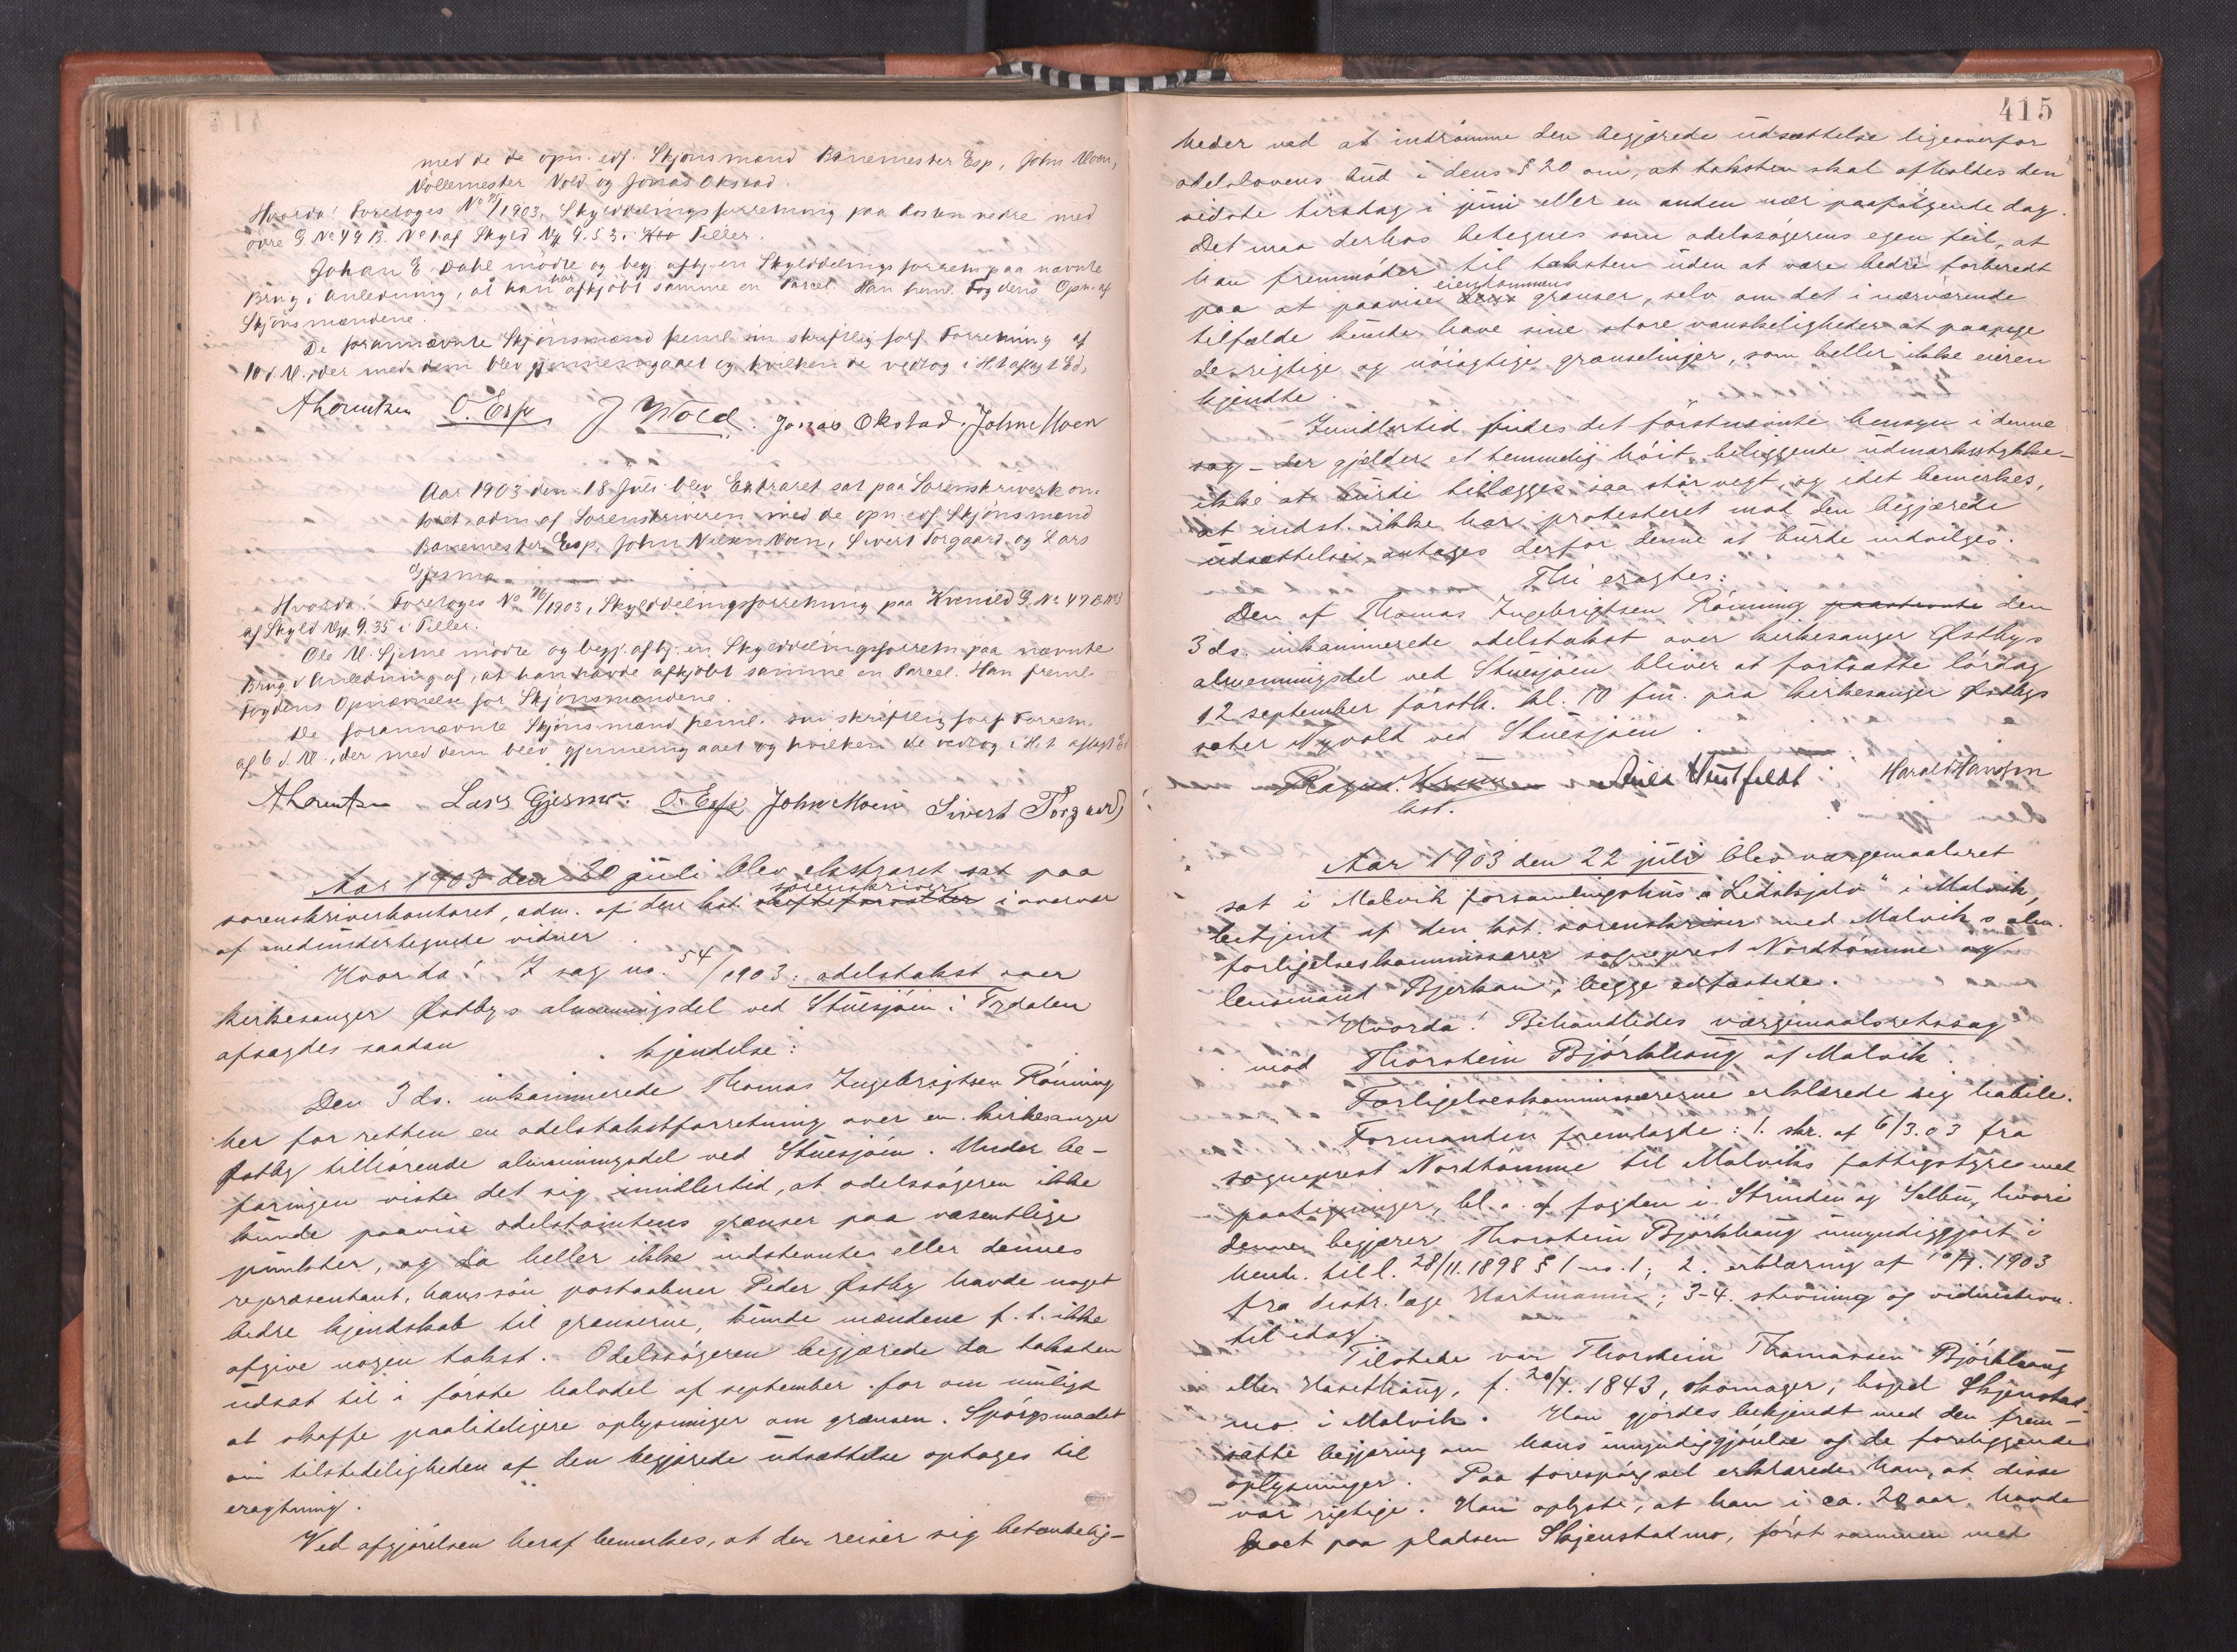 med de de opn. edf. Skjønsmænd Banemester Esp, John Moen,
Møllemester Vold og Jonas Okstad.
Hvorda! Foretoges No 75/1903, Skylddelingsforretning paa Rosten nedre med
øvre G. No 49 B. No 1 af Skyld Mk 9.53 i Tiller.
Johan E. Dahl mødte og begj. afhj. en Skylddelingsforretn. paa nævnte
Brug i Anledning, at han har afkjøbt samme en Parcel. Han freml. Fogdens Opn. af
Skjønsmændene.
De forannævnte Skjønsmænd freml. en skriftlig forf. Forretning af
10 d. M., der med dem blev gjennemgaaet og hvilken de vedtog i H. t. aflagt Ed.
A Lorentzen O. Esp J Vold. Jonas Okstad. John Moen
Aar 1903 den 18 Juli blev Extraret sat paa Sorenskriverkon-
toret, adm. af Sorenskriveren med de opn. edf. Skjønsmænd
Banemester Esp, John Nilsen Moen, Sivert Torgaard og Lars
Gjesmo
Hvorda! Foretoges No 76/1903, Skylddelingsforretning paa Kvenild G. No 47 B. No 1
af Skyld Mk. 9.35 i Tiller.
Ole M. Sjetne mødte og begj. afhj. en Skylddelingsforretn. paa nævnte
Brug i Anledning af, at han havde afkjøbt samme en Parcel. Han freml.
Fogdens Opnævnelse for Skjønsmændene.
De forannævnte Skjønsmænd freml. en skriftlig forf. Forretn.
af 6 d. M., der med dem blev gjennemgaaet og hvilken de vedtog i H. t. aflagt Ed
A Lorentzen Lars Gjesmo. O. Esp John Moen Sivert Torgaard
Aar 1903 den 20 juli blev ekstraret sat paa
sorenskriverkontoret, adm. af den kst. skifteforvalter sorenskriver i overvær
af medundertegnede vidner.
Hvorda! I sag no. 54/1903: odelstakst over
kirkesanger Østbys almenningsdel ved Stuesjøen i Tydalen
afsagdes saadan kjendelse:
Den 3 ds. inkaminerede Thomas Ingebrigtsen Rønning
her for retten en odelstakstforretning over en kirkesanger
Østby tilhørende almenningsdel ved Stuesjøen. Under be-
faringen viste det sig imidlertid, at odelssøgeren ikke
kunde paavise odelstomtens grænser paa væsentlige
punkter, og da heller ikke indstevnte eller dennes
repræsentant, hans søn postaabner Peder Østby havde noget
bedre kjendskab til grænserne, kunde mændene f. t. ikke
afgive nogen takst. Odelssøgeren begjærede da taksten
udsat til i første halvdel af september for om muligt
at skaffe paalideligere oplysninger om grænsen. Spørgsmaalet
om tilstedeligheden af den begjærede udsættelse optoges til
eragtning.
Ved afgjørelsen heraf bemerkes, at der reiser sig betænkelig-
415
heder ved at indrømme den begjærede udsættelse ligeoverfor
odelslovens bud i dens § 20 om, at taksten skal afholdes den
sidste tirsdag i juni eller en anden nær paafølgende dag.
Det maa derhos betegnes som odelssøgerens egen feil, at
han fremmøder til taksten uden at være bedre forberedt
paa at paavise dens eiendommens grænser, selv om det i nærværende
tilfælde kunde have sine store vanskeligheder at paapege
de rigtige og nøiagtige grænselinjer, som heller ikke eieren
kjendte.
Imidlertid findes det førstnævnte hensyn i denne
sag - der gjælder et temmelig høit beliggende udmarksstykke -
ikke at burde tillægges saa stor vegt, og idet bemerkes,
at indst. ikke har protesteret mod den begjærede
udsættelse antages derfor denne at burde indvilges.
Thi eragtes:
Den af Thomas Ingebrigtsen Rønning paastevnte den
3 ds. inkaminerede odelstakst over kirkesanger Østbys
almenningsdel ved Stuesjøen bliver at fortsætte lørdag
12 september førstk. kl. 10 fm. paa kirkesanger Østbys
sæter Nyvold ved Stuesjøen.
kst. Harald Hansen
Aar 1903 den 22 juli blev vergemaalsret
sat i Malvik forsamlingshus "Lidskjalv" i Malvik,
betjent af den kst. sorenskriver med Malviks alm.
forligelseskommissærer sogneprest Nordtømme og
lensmand Bjerkan, begge edfæstede.
Hvorda! Behandledes vergemaalsretssag
mod Thorstein Bjørkhaug af Malvik.
Forligelseskommissærerne erklærede sig habile.
Formanden fremlagte: 1. skr. af 6/3.03 fra
sogneprest Nordtømme til Malviks fattigstyre med
paategninger, bl. a. af fogden i Strinden og Selbu, hvori
denne begjærer Thorstein Bjørkhaug umyndiggjort i
henh. til l. 28/11.1898 § 1 no. 1; 2. erklæring af 10/7.1903
fra distr. læge Hartmann; 3-4. stevning og vidnestevn.
til idag.
Tilstede var Thorstein Thomassen Bjørkhaug
eller Hasethaug, f. 20/4.1843, skomager, boped Skjenstad-
mo i Malvik. Han gjordes bekjendt med den frem-
satte begjæring om hans umyndiggjørelse og de foreliggende
oplysninger. Paa forespørgsel erklærede han, at disse
var rigtige. Han oplyste, at han i ca. 20 aar havde
boet paa pladsen Skjenstadmo, først sammen med